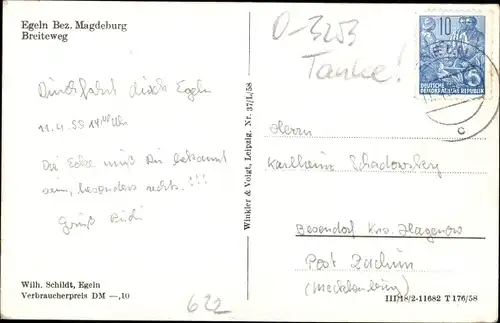 Egeln Bez. Magdeburg
Breiteweg
O-3253
Tanke!
10
DEUTSCHE
DEMOKRATISCHE REPUBLIK
Durchfahrt durch Egeln
11.4.59 14⁰⁰ Uhr
Die Ecke muß Dir bekannt
sein, besonders rechts.!!!
Gruß
Winkler & Voigt, Leipzig. Nr. 37/L/58
Herrn
Karlheinz Schadowsky
Besendorf Krs. Hagenow
Post Zachun
(Mecklenburg)
Wilh. Schildt, Egeln
Verbraucherpreis DM —,10
622
III/18/2-11682 T 176/58